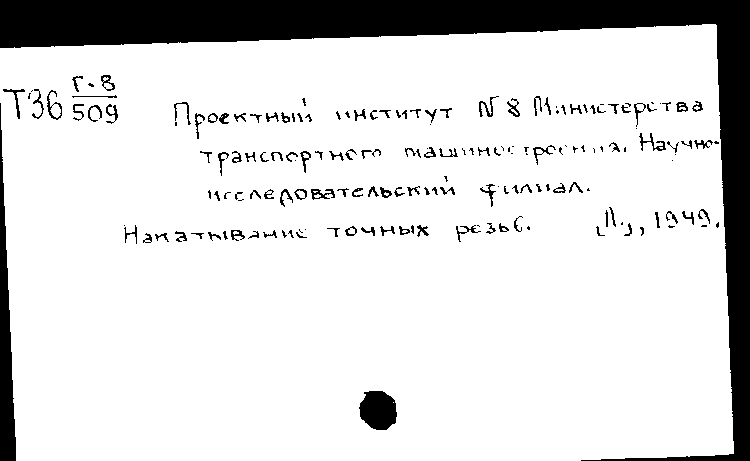 Т36 Г-8/509
Проектный институт N 8 Министерства
транспортного машиностроения. Научно-
исследовательский филиал.
Накатывание точных резьб. [Л.], 1949.